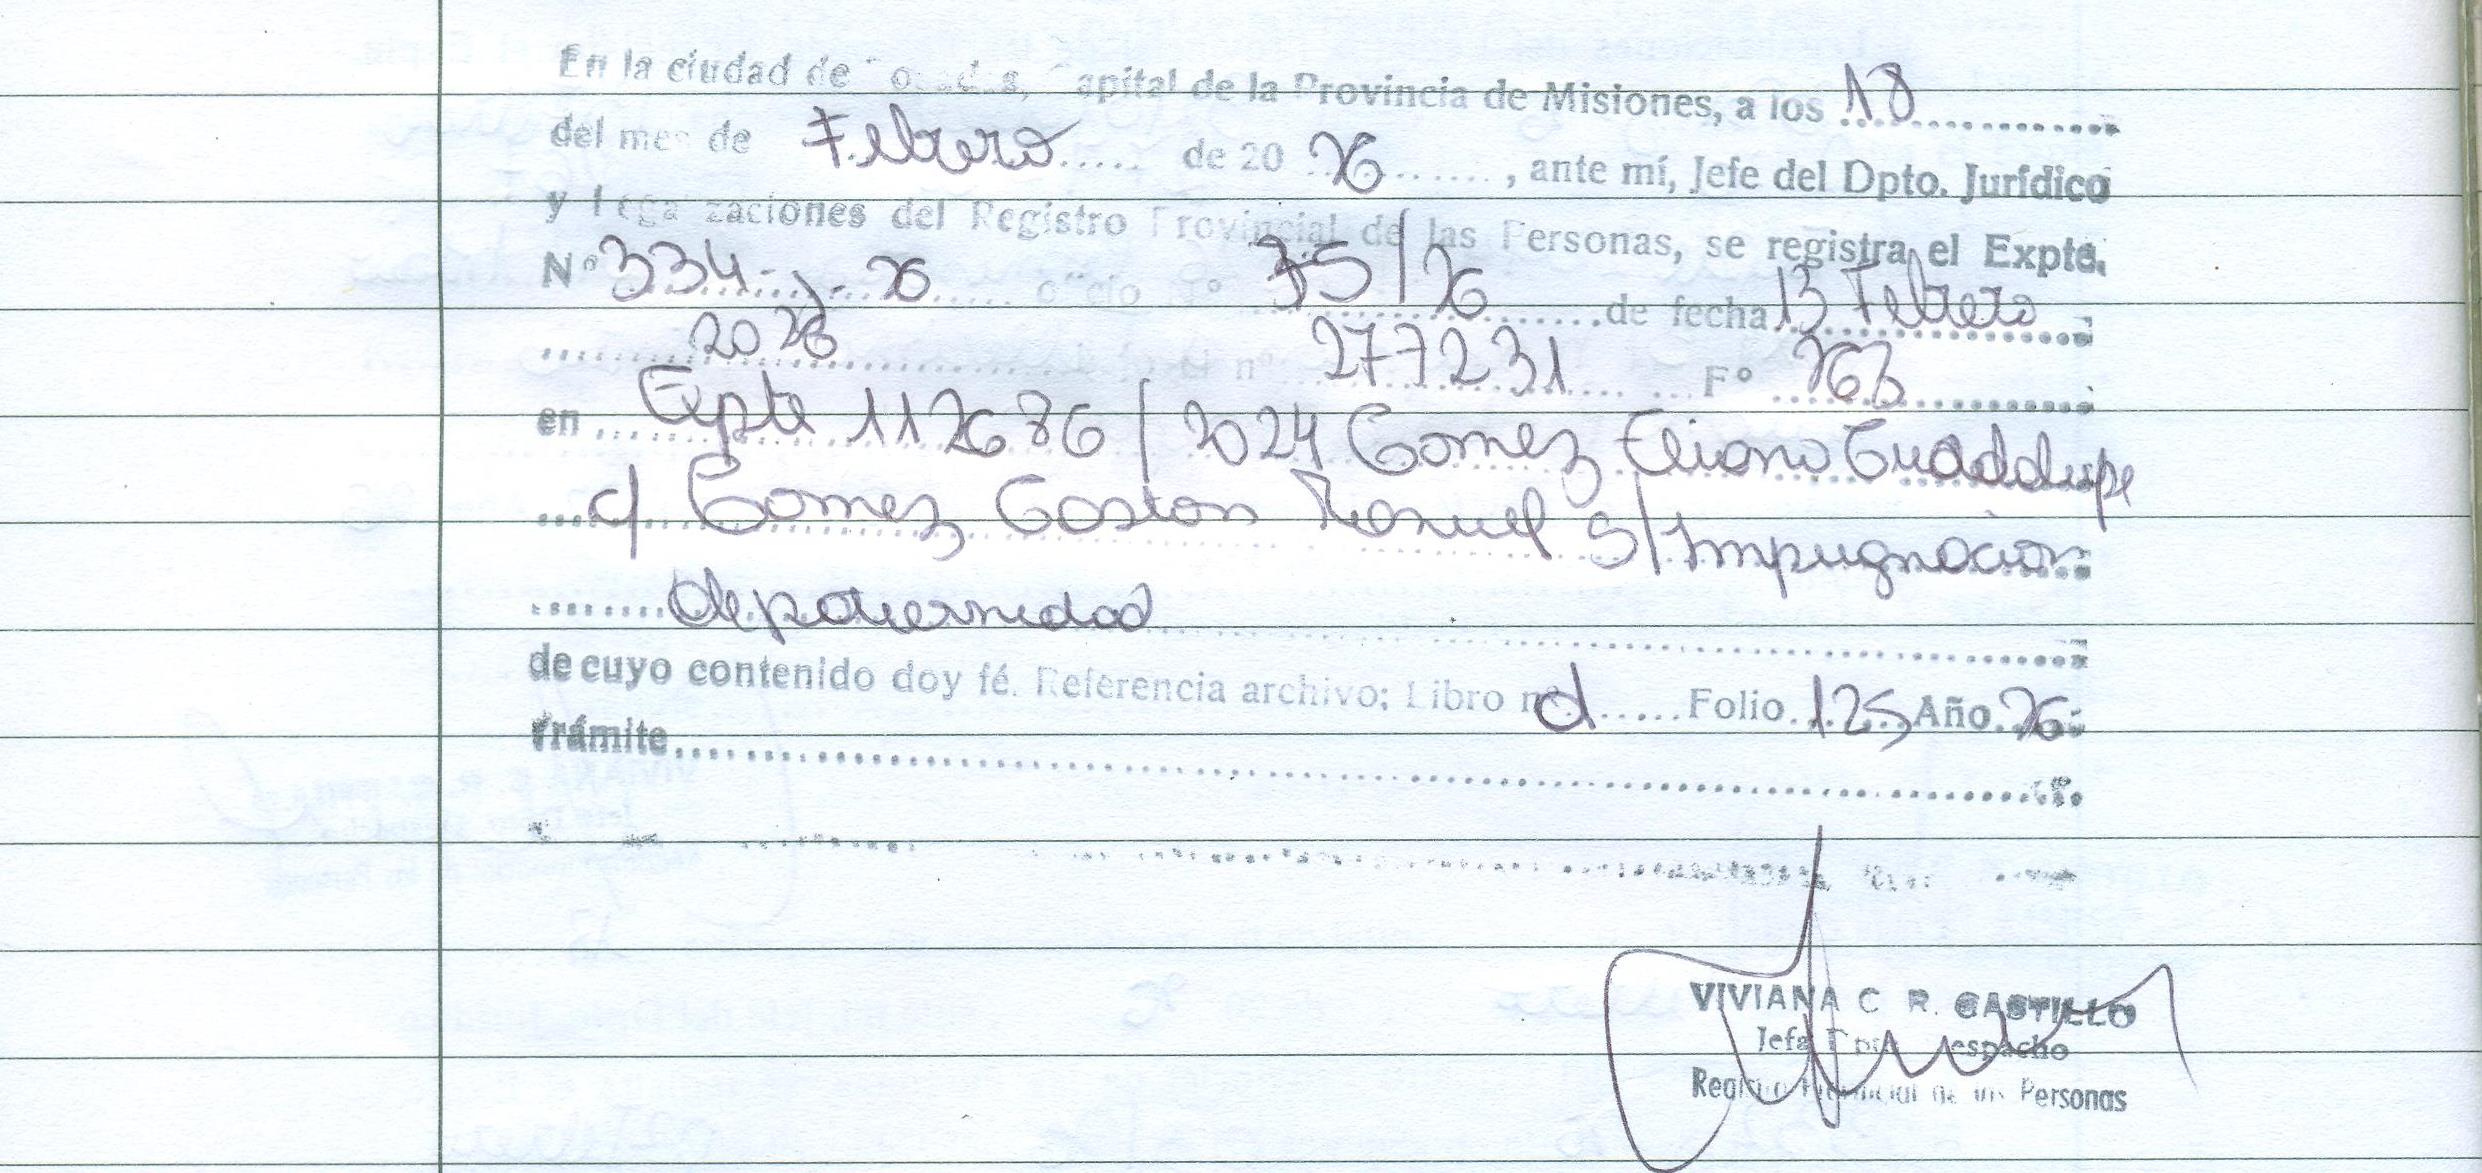 En la ciudad de Posadas, Capital de la Provincia de Misiones, a los 18
del mes de Febrero de 20 26, ante mí, Jefe del Dpto. Jurídico
y Legalizaciones del Registro Provincial de las Personas, se registra el Expte.
N° 334-J-26 oficio N° 35/26 de fecha 13 Febrero
2026 277231 F° 263
en Expte 112686/2024 Gomez Eliana Guadalupe
c/ Gomez Gaston Manuel S/Impugnacion
de paternidad
de cuyo contenido doy fé. Referencia archivo: Libro nº d Folio 125 Año 26
Trámite
VIVIANA C R. CASTILLO
Jefa Dpto Despacho
Registro Provincial de las Personas